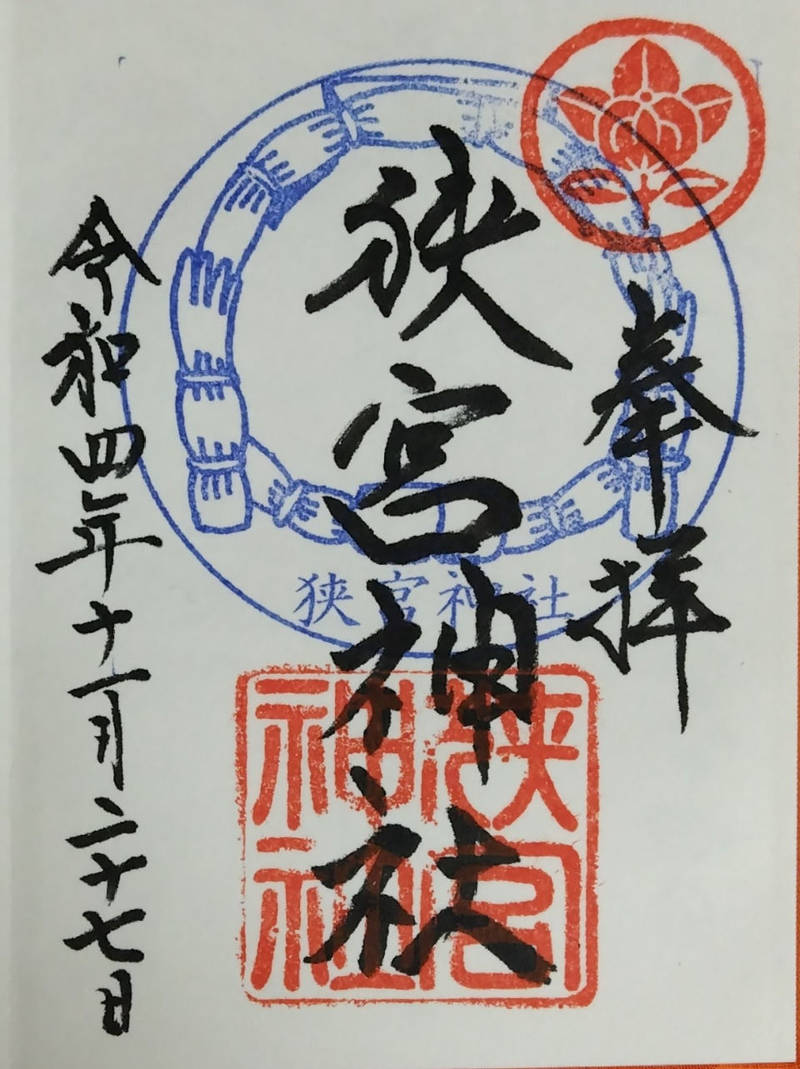 奉拝
狭宮神社
令和四年十一月二十七日
狭宮神社
狭宮
神社